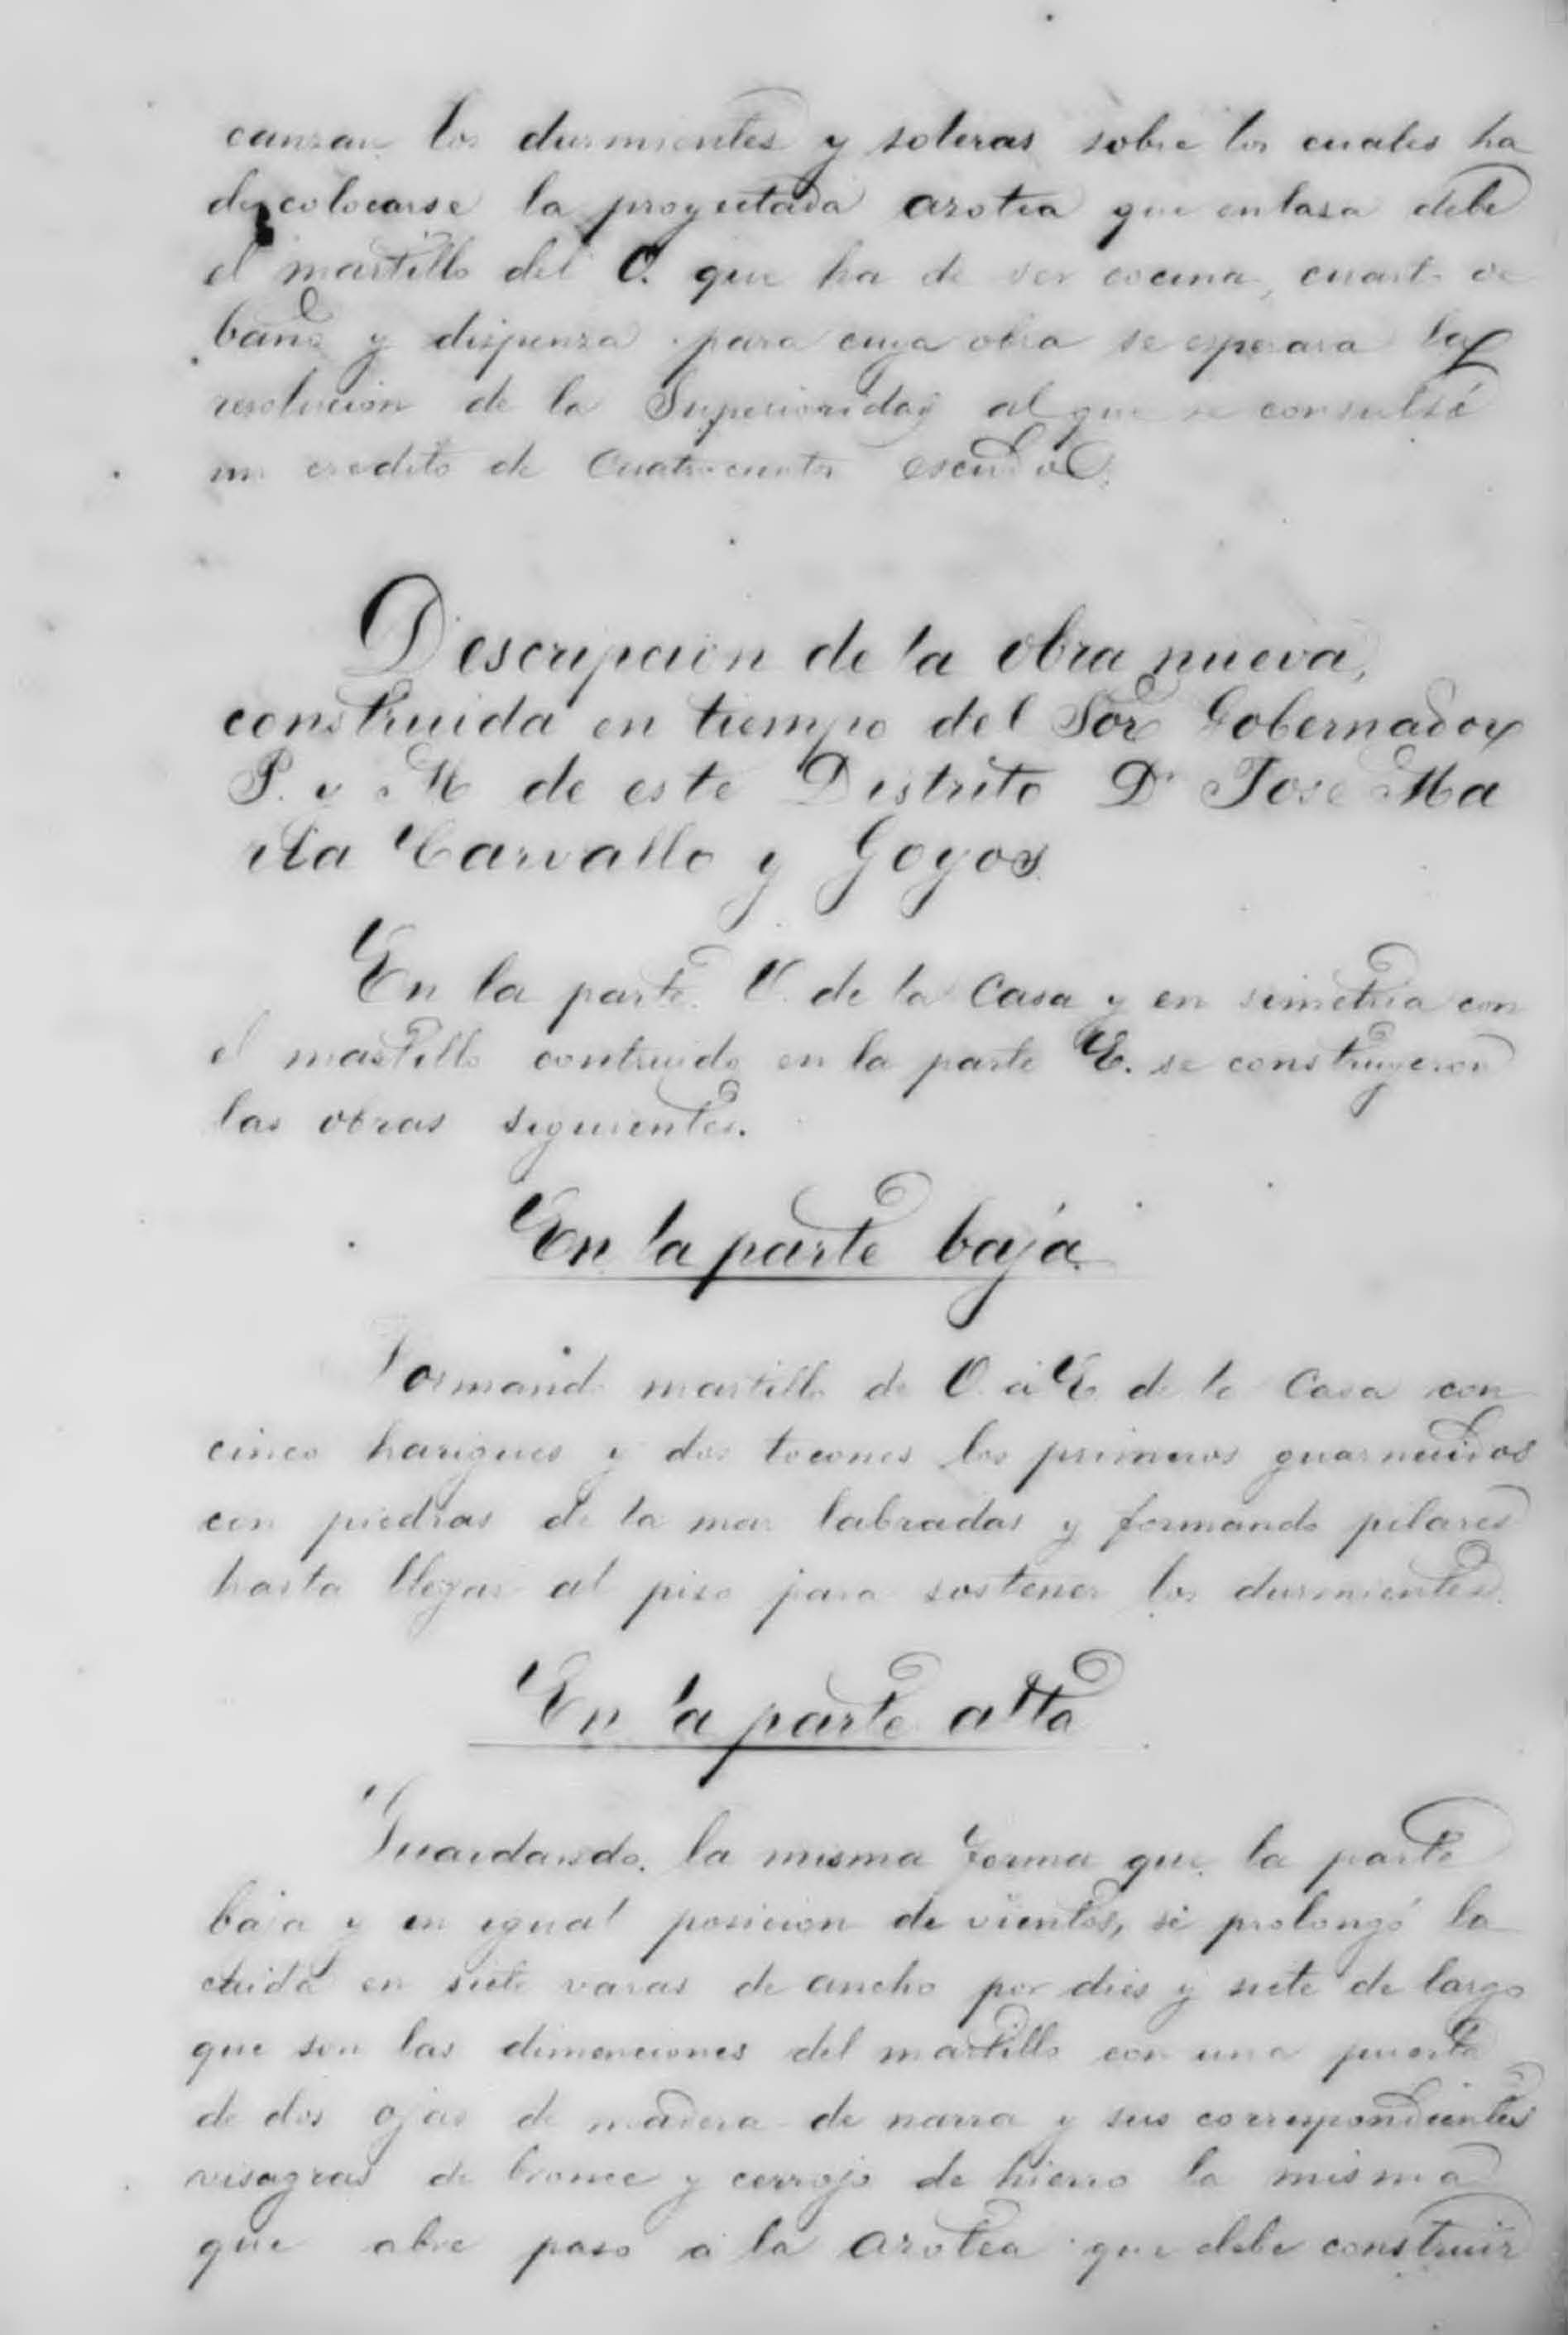 canzan los durmientes y soleras sobre los cuales ha
de colocarse la proyectada azotea que enlasa debe
el martillo del O. que ha de ser cocina, cuarto de
baño y dispensa para cuya obra se esperara la
resolucion de la Superioridad al que se consultó
un credito de Cuatrocientos escudos.
Descripcion de la obra nueva,
construida en tiempo del Sor Gobernador
P. y M de este Distrito Dn Jose Ma
ria Carvallo y Goyos.
En la parte O. de la Casa y en simetria con
el martillo contruido en la parte E. se construyeron
las obras siguientes.
En la parte baja.
Formando martillo de O. á E. de la Casa con
cinco harigues y dos tocones los primeros guarnecidos
con piedras de la mar labradas y formando pilares
hasta llegar al piso para sostener los durmientes.
En la parte alta
Guardando la misma forma que la parte
baja y en igual posicion de vientos, se prolongó la
caida en siete varas de ancho por dies y siete de largo
que son las dimenciones del martillo con una puerta
de dos ojas de madera de narra y sus correspondientes
visagras de bronce y cerrojo de hierro la misma
que abre paso a la azotea que debe construir